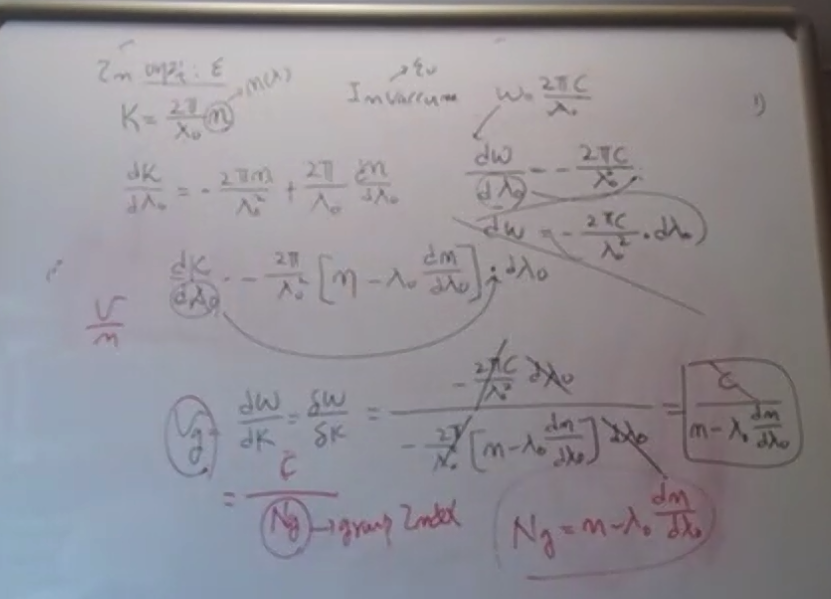 In opt: ε
K = 2π/λ₀ n → n(λ)
In vaccum → ε₀
W = 2πC/λ₀
1)
dK/dλ₀ = - 2πn/λ₀² + 2π/λ₀ dn/dλ₀
dW/dλ₀ = - 2πC/λ₀²
dW = - 2πC/λ₀² . dλ₀
dK/dλ₀ - 2π/λ₀² [n - λ₀ dn/dλ₀] ; dλ₀
V/n
Vg dW/dK = δW/δK = - 2πC/λ₀² dλ₀ / - 2π/λ₀² [n - λ₀ dn/dλ₀] dλ₀ = C / n - λ₀ dn/dλ₀
= C/Ng → group Index
Ng = n - λ₀ dn/dλ₀